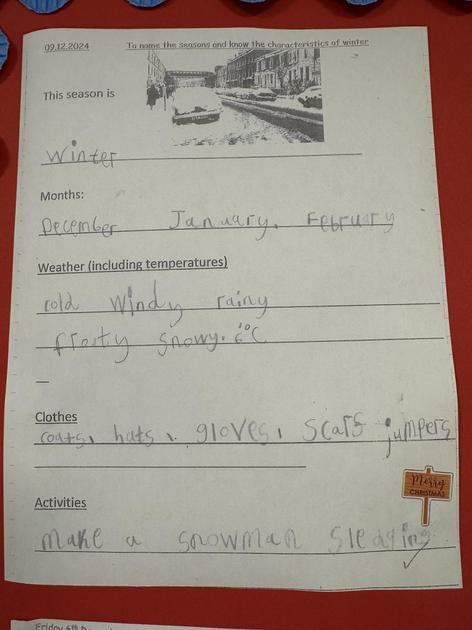 09.12.2024 To name the seasons and know the characteristics of winter
This season is
Winter
Months:
December January, February
Weather (including temperatures)
cold windy rainy
frosty snowy.
Clothes
coats, hats, gloves, scarfs jumpers
Merry
CHRISTMAS
Activities
make a snowman sledging
Friday 6th